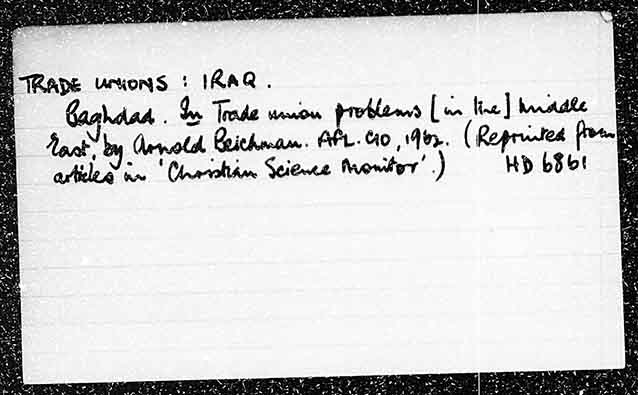 TRADE UNIONS : IRAQ.
Baghdad. In Trade union problems [in the] Middle
East, by Arnold Beichman. AFL.CIO, 1962. (Reprinted from
articles in 'Christian Science Monitor'.) HD 6861